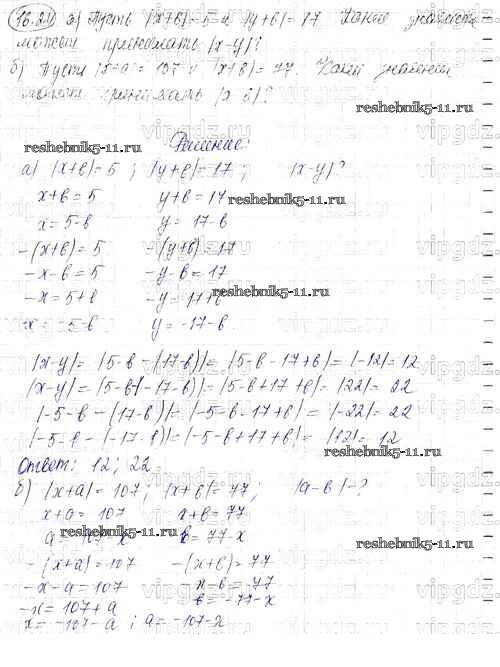 16.24 а) Пусть |x+b|=5 и |y+b|=17 Какие значения
может принимать |x-y|?
б) Пусть |x+a|=107 и |x+b|=77. Какие значения
может принимать
reshebnik5-11.ru
Решение:
а) |x+b|=5; |y+b|=17; |x-y|?
x+b=5 y+b=17
reshebnik5-11.ru
x=5-b y=17-b
-(x+b)=5 -(y+b)=17
-x-b=5 -y-b=17
-x=5+b -y=17+b
reshebnik5-11.ru
x=-5-b y=-17-b
|x-y|=|5-b-(17-b)|=|5-b-17+b|=|-12|=12
|x-y|=|5-b-(-17-b)|=|5-b+17+b|=|22|=22
|-5-b-(17-b)|=|-5-b-17+b|=|-22|=22
|-5-b-(-17-b)|=|-5-b+17+b|=|12|=12
Ответ: 12; 22
б) |x+a|=107; |x+b|=77; |a-b|-?
x+a=107 x+b=77
reshebnik5-11.ru
a=107-x b=77-x
reshebnik5-11.ru
-(x+a)=107 -(x+b)=77
-x-a=107 -x-b=77
-x=107+a b=-77-x
x=-107-a; a=-107-x
vipgdz.ru